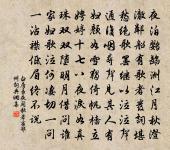 夜泊鸚鵡洲江月秋澄
澈鄰船有歌者發詞堪
愁絕歌罷繼以泣泣聲
通復咽尋聲見其人有
婦顏如雪獨倚帆檣立
娉婷十七八夜淚如真
珠雙雙墮明月借問誰
家婦歌泣何淒切一問
一沾襟低眉終不說
白居易夜聞歌者宿鄂
州詞典網集